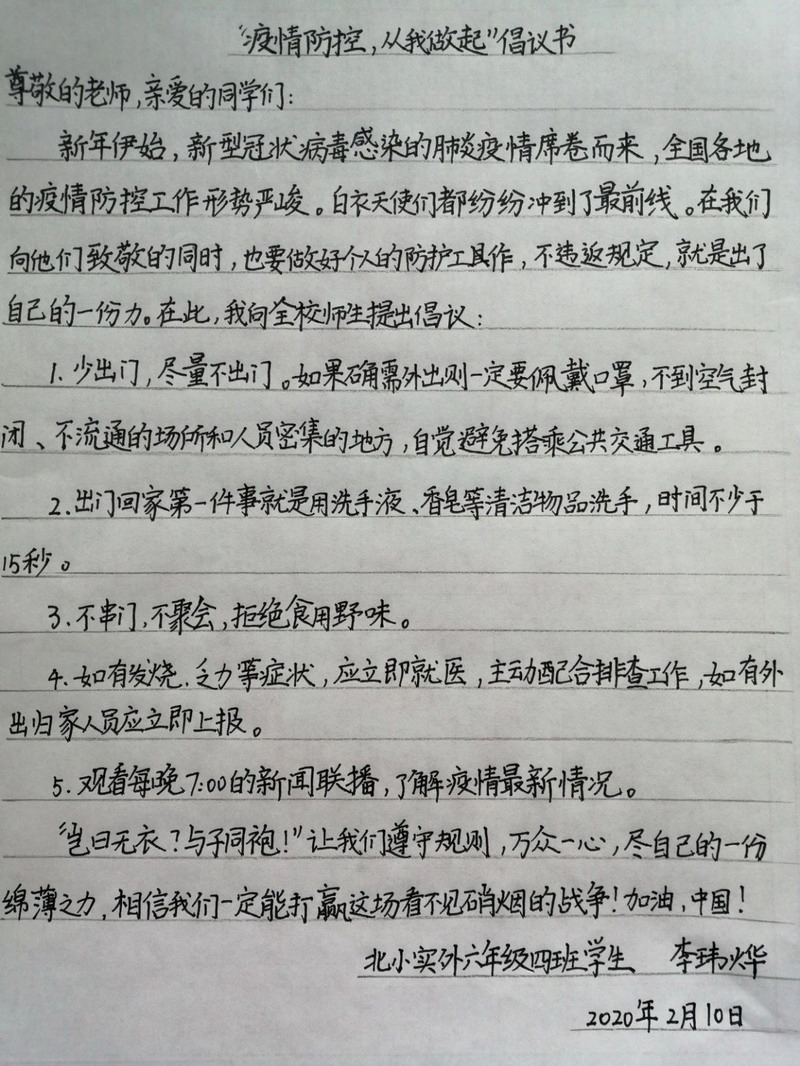 “疫情防控，从我做起”倡议书
尊敬的老师，亲爱的同学们：
新年伊始，新型冠状病毒感染的肺炎疫情席卷而来，全国各地
的疫情防控工作形势严峻。白衣天使们都纷纷冲到了最前线。在我们
向他们致敬的同时，也要做好个人的防护工具作，不违返规定，就是出了
自己的一份力。在此，我向全校师生提出倡议：
1. 少出门，尽量不出门。如果确需外出则一定要佩戴口罩，不到空气封
闭、不流通的场所和人员密集的地方，自觉避免搭乘公共交通工具。
2.出门回家第一件事就是用洗手液、香皂等清洁物品洗手，时间不少于
15秒。
3.不串门，不聚会，拒绝食用野味。
4.如有发烧、乏力等症状，应立即就医，主动配合排查工作，如有外
出归家人员应立即上报。
5.观看每晚7:00的新闻联播，了解疫情最新情况。
“岂曰无衣？与子同袍！”让我们遵守规则，万众一心，尽自己的一份
绵薄之力，相信我们一定能打赢这场看不见硝烟的战争！加油，中国！
北小实外六年级四班学生 李玮烨
2020年2月10日